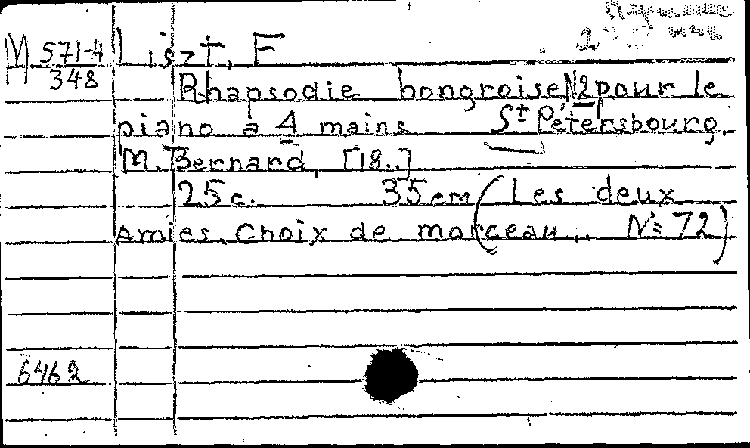 M 571-4
348
Liszt, F
Rhapsodie hongroise N2 pour le
piano a 4 mains St Pétersbourg,
M. Bernard, [18..]
25c. 35cm (Les deux
amies. Choix de morceau.. № 72)
6462